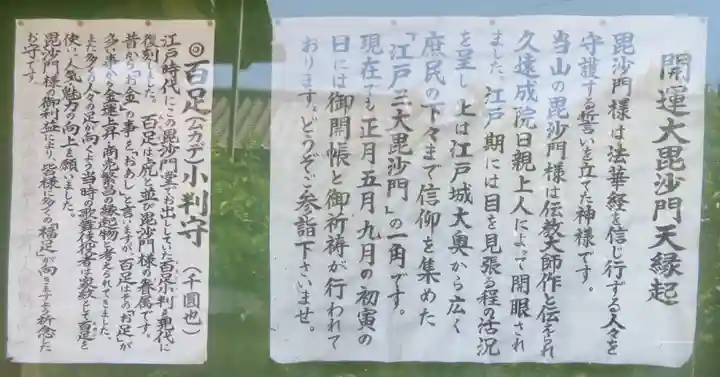 開運大毘沙門天縁起
毘沙門様は法華経を信じ行ずる人々を
守護する誓いを立てた神様です。
当山の毘沙門様は伝教大師作と伝えられ
久遠成院日親上人によって開眼され
ました。江戸期には目を見張る程の活況
を呈し、上は江戸城大奥から広く
庶民の下々まで信仰を集めた
「江戸三大毘沙門」の一角です。
現在ても正月五月九月の初寅の
日には御開帳と御祈祷が行われて
おります。どうぞご参詣下さいませ。
◎百足(ムカデ)小判守(千圓也)
江戸時代にこの毘沙門堂でお出ししていた百足小判を現代に
復刻しました。百足は虎と並び毘沙門様の眷属です。
昔から「お金」の事を「おあし」と言いますが百足はその「お足」が
多い事から金運上昇・商売繁盛の縁起物と考えられてきました。
また多くの人々の足が向くよう当時の歌舞伎役者は家紋として百足を
使い人気・魅力の向上を願いました。
毘沙門様の御利益により、皆様に多くの「福足」が向きますよう祈念した
お守です。